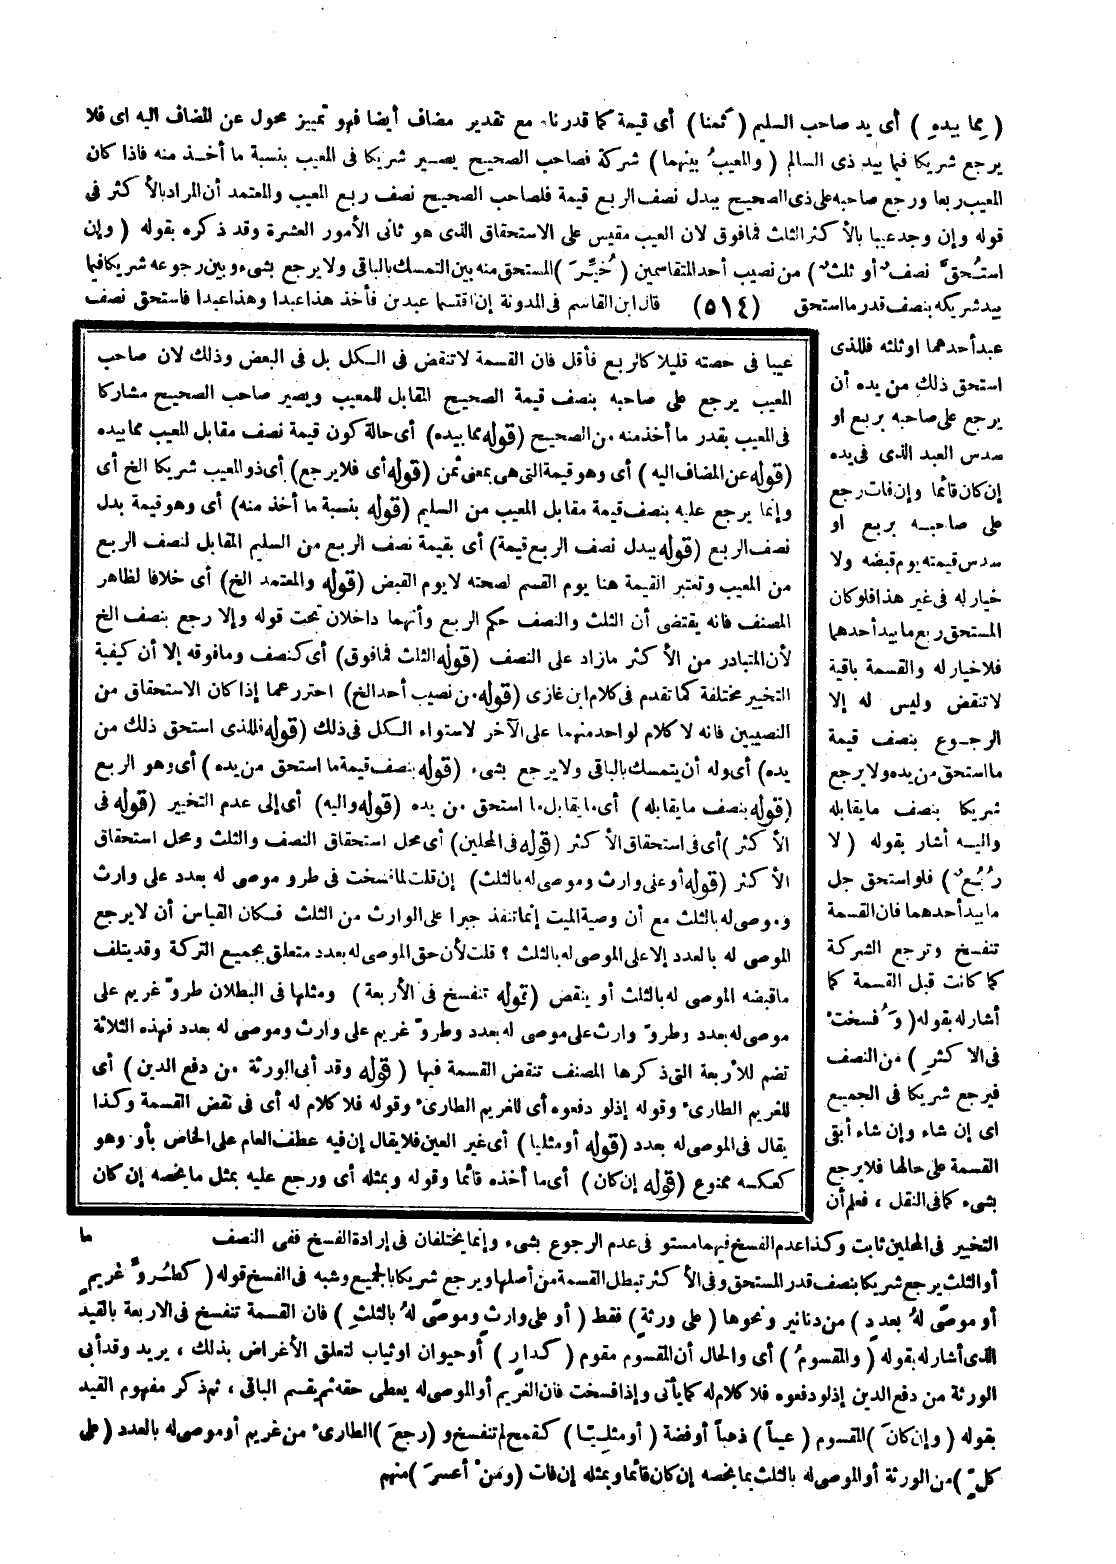 ( بما بيدهِ ) أى يد صاحب السليم ( ثمنا ) أى قيمة كما قدرناه مع تقدير مضاف أيضا فهو تمييز محول عن المضاف اليه اى فلا
يرجع شريكا فيما بيد ذى السالم ( والمعيبُ بينهما ) شركة فصاحب الصحيح يصير شريكا فى المعيب بنسبة ما أخذ منه فاذا كان
المعيب ربعا ورجع صاحبه على ذى الصحيح ببدل نصف الربع قيمة فلصاحب الصحيح نصف ربع المعيب والمعتمد أن المراد بالأكثر فى
قوله وإن وجد عيبا بالأكثر الثلث فمافوق لان العيب مقيس على الاستحقاق الذى هو ثانى الأمور العشرة وقد ذكره بقوله ( وإن
استُحقَّ نصفٌ أو ثلثٌ ) من نصيب أحد المتقاسمين ( خُيِّرَ ) المستحق منه بين التمسك بالباقى ولا يرجع بشىء وبين رجوعه شريكا فيما
بيد شريكه بنصف قدر ما استحق (٥١٤) قال ابن القاسم فى المدونة إن اقتسما عبدين فأخذ هذا عبدا وهذا عبدا فاستحق نصف
عبد أحدهما او ثلثه فللذى
استحق ذلك من يده أن
يرجع على صاحبه بربع او
سدس العبد الذى فى يده
إن كان قائما وإن فات رجع
على صاحبه بربع او
سدس قيمته يوم قبضه ولا
خيار له فى غير هذا فلو كان
المستحق ربع ما بيد أحدهما
فلا خيار له والقسمة باقية
لا تنقض وليس له إلا
الرجوع بنصف قيمة
ما استحق من يده ولا يرجع
شريكا بنصف ما يقابله
واليه أشار بقوله ( لا
رُبُعٌ ) فلو استحق جل
ما بيد أحدهما فان القسمة
تنفسخ وترجع الشركة
كما كانت قبل القسمة كما
أشار له بقوله ( وَفُسختْ
فى الاكثرِ ) من النصف
فيرجع شريكا فى الجميع
اى إن شاء وإن شاء أبقى
القسمة على حالها فلا يرجع
بشىء كما فى النقل ، فعلم أن
التخيير فى المحلين ثابت وكذا عدم الفسخ فيهما مستو فى عدم الرجوع بشىء وإنما يختلفان فى إرادة الفسخ ففى النصف
أو الثلث يرجع شريكا بنصف قدر المستحق وفى الأكثر تبطل القسمة من أصلها ويرجع شريكا بالجميع وشبه فى الفسخ قوله ( كطُروِّ غريمٍ
أو موصًى لهُ بعددٍ ) من دنانير ونحوها ( على ورثةٍ ) فقط ( أو على وارثٍ وموصًى لهُ بالثلثِ ) فان القسمة تنفسخ فى الاربعة بالقيد
الذى أشار له بقوله ( والمقسومُ ) أى والحال أن المقسوم مقوم ( كدارٍ ) أو حيوان اوثياب لتعلق الأغراض بذلك ، يريد وقد أبى
الورثة من دفع الدين إذ لو دفعوه فلا كلام له كما يأتى وإذا فسخت فان الغريم أو الموصى له يعطى حقه ثم يقسم الباقى ، ثم ذكر مفهوم القيد
بقوله ( وإن كانَ ) المقسوم ( عيناً ) ذهباً أو فضة ( أو مثلِيًّا ) كقمح لم تنفسخ و ( رجعَ ) الطارىء من غريم أو موصى له بالعدد ( على
كلٍّ ) من الورثة أو الموصى له بالثلث بما يخصه إن كان قائما وبمثله إن فات ( ومَنْ أعسرَ ) منهم
عيبا فى حصته قليلا كالربع فأقل فان القسمة لا تنقض فى الكل بل فى البعض وذلك لان صاحب
المعيب يرجع على صاحبه بنصف قيمة الصحيح المقابل للمعيب ويصير صاحب الصحيح مشاركا
فى المعيب بقدر ما أخذ منه من الصحيح (قوله مما بيده) أى حالة كون قيمة نصف مقابل المعيب مما بيده
(قوله عن المضاف اليه ) أى وهو قيمة التى هى بمعنى ثمن (قوله أى فلا يرجع) أى ذو المعيب شريكا الخ أى
وإنما يرجع عليه بنصف قيمة مقابل المعيب من السليم (قوله بنسبة ما أخذ منه) أى وهو قيمة بدل
نصف الربع (قوله ببدل نصف الربع قيمة) أى بقيمة نصف الربع من السليم المقابل لنصف الربع
من المعيب وتعتبر القيمة هنا يوم القسم لصحته لا يوم القبض (قوله والمعتمد الخ) أى خلافا لظاهر
المصنف فانه يقتضى أن الثلث والنصف حكم الربع وأنهما داخلان تحت قوله وإلا رجع بنصف الخ
لأن المتبادر من الأكثر مازاد على النصف (قوله الثلث فمافوق) أى كنصف ومافوقه إلا أن كيفية
التخيير مختلفة كما تقدم فى كلام ابن غازى (قوله من نصيب أحد الخ) احترز عما إذا كان الاستحقاق من
النصيبين فانه لا كلام لواحد منهما على الآخر لاستواء الكل فى ذلك (قوله فللذى استحق ذلك من
يده) أى وله أن يتمسك بالباقى ولا يرجع بشىء (قوله بنصف قيمة ما استحق من يده ) أى وهو الربع
(قوله بنصف ما يقابله ) أى ما يقابل ما استحق من يده (قوله واليه) أى إلى عدم التخيير (قوله فى
الأكثر ) أى فى استحقاق الأكثر (قوله فى المحلين) أى محل استحقاق النصف والثلث ومحل استحقاق
الأكثر (قوله أو على وارث وموصى له بالثلث) إن قلت لما فسخت فى طرو موصى له بعدد على وارث
وموصى له بالثلث مع أن وصية الميت إنما تنفذ جبرا على الوارث من الثلث فكان القياس أن لا يرجع
الموصى له بالعدد إلا على الموصى له بالثلث ؟ قلت لأن حق الموصى له بعدد متعلق بجميع التركة وقد يتلف
ما قبضه الموصى له بالثلث أو ينقض (قوله تنفسخ فى الأربعة ) ومثلها فى البطلان طروّ غريم على
موصى له بعدد وطروّ وارث على موصى له بعدد وطروّ غريم على وارث وموصى له بعدد فهذه الثلاثة
تضم للأربعة التى ذكرها المصنف تنقض القسمة فيها ( قوله وقد أبى الورثة من دفع الدين ) أى
للغريم الطارىء وقوله إذ لو دفعوه أى للغريم الطارىء وقوله فلا كلام له أى فى نقض القسمة وكذا
يقال فى الموصى له بعدد (قوله أو مثليا ) أى غير العين فلا يقال إن فيه عطف العام على الخاص بأو وهو
كعكسه ممنوع (قوله إن كان ) أى ما أخذه قائما وقوله وبمثله أى ورجع عليه بمثل ما يخصه إن كان
ما